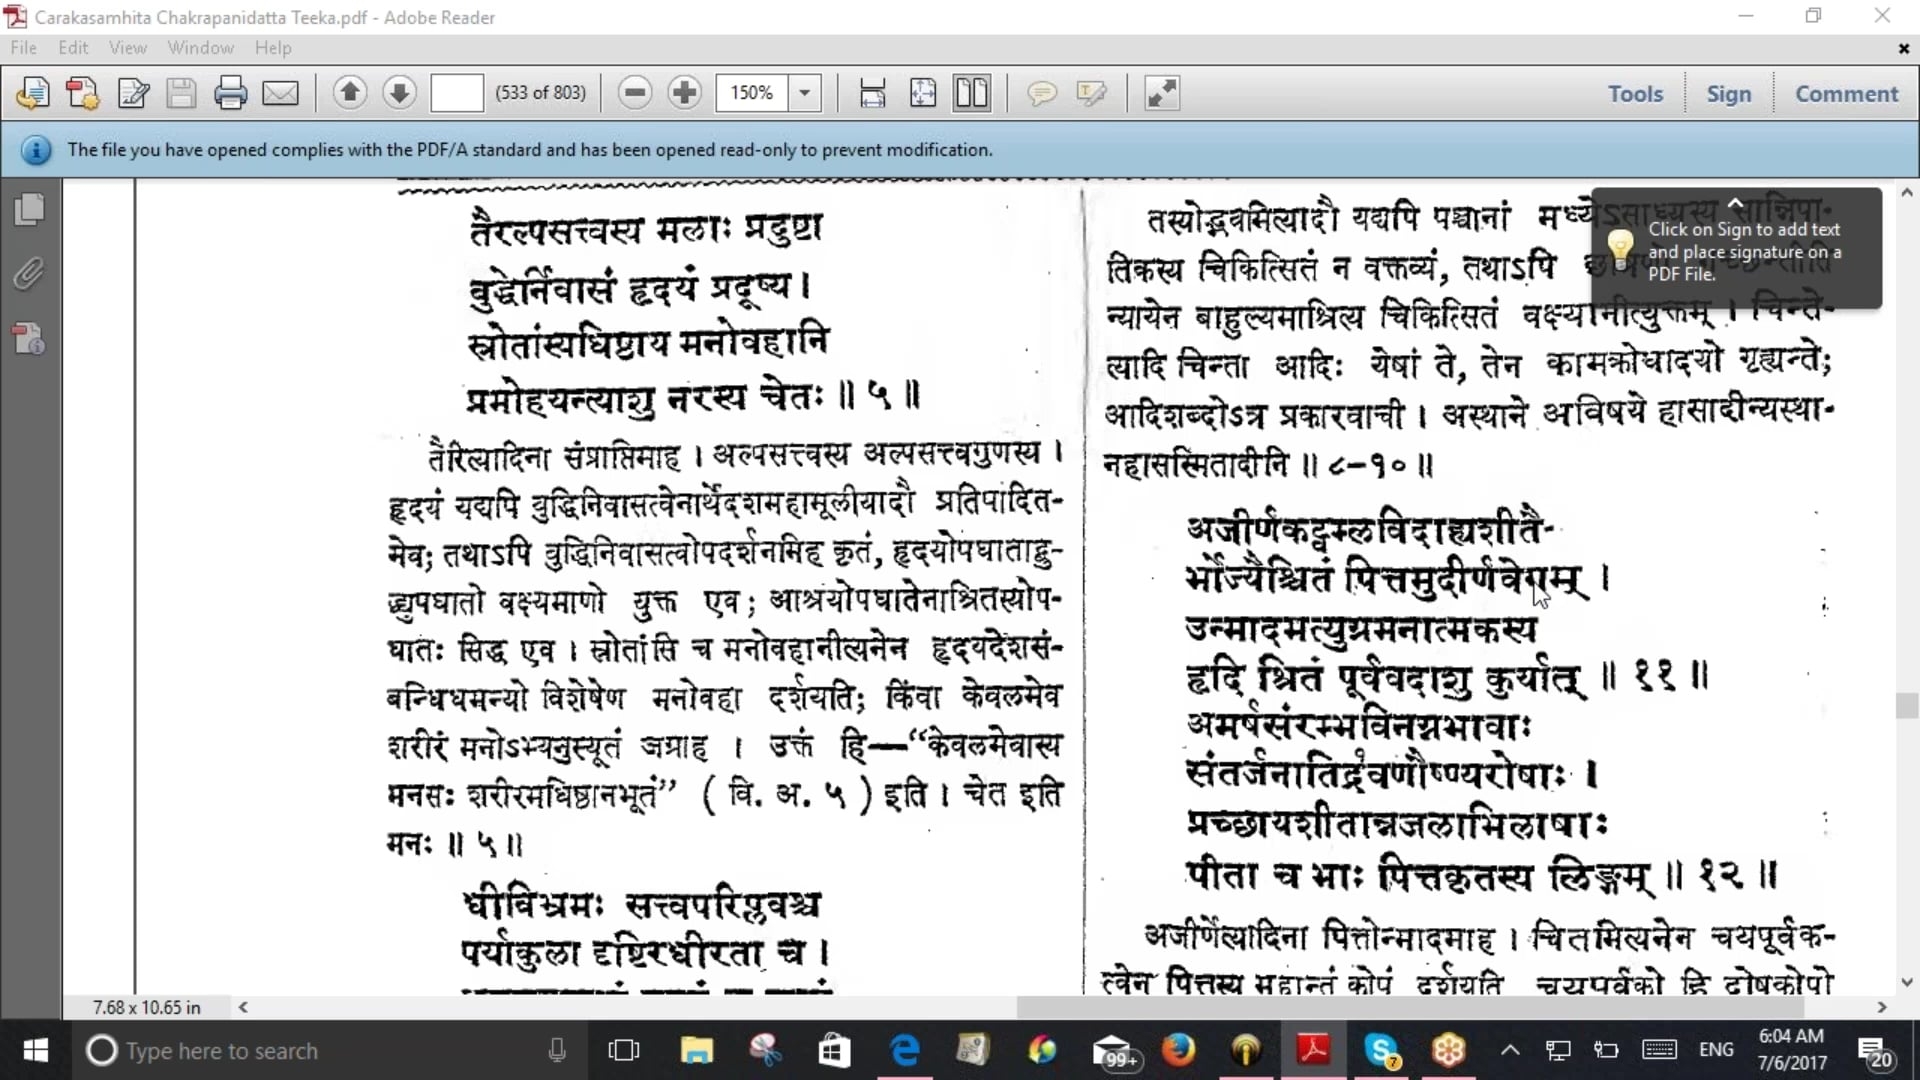 Carakasamhita Chakrapanidatta Teeka.pdf - Adobe Reader
File Edit View Window Help
(533 of 803) 150% Tools Sign Comment
The file you have opened complies with the PDF/A standard and has been opened read-only to prevent modification.
तैरल्पसत्त्वस्य मलाः प्रदुष्टा
बुद्धेर्निवासं हृदयं प्रदूष्य।
स्रोतांस्यधिष्ठाय मनोवहानि
प्रमोहयन्त्याशु नरस्य चेतः ॥ ५ ॥
तैरित्यादिना संप्राप्तिमाह । अल्पसत्त्वस्य अल्पसत्त्वगुणस्य ।
हृदयं यद्यपि बुद्धिनिवासत्वेनार्थेदशमहामूलीयादौ प्रतिपादित-
मेव; तथाऽपि बुद्धिनिवासत्वोपदर्शनमिह कृतं, हृदयोपघाताद्बु-
द्ध्युपघातो वक्ष्यमाणो युक्त एव; आश्रयोपघातेनाश्रितस्योप-
घातः सिद्ध एव । स्रोतांसि च मनोवहानीत्यनेन हृदयदेशसं-
बन्धिधमन्यो विशेषेण मनोवहा दर्शयति; किंवा केवलमेव
शरीरं मनोऽभ्यनुस्यूतं जग्राह । उक्तं हि—“केवलमेवास्य
मनसः शरीरमधिष्ठानभूतं” ( वि. अ. ५ ) इति । चेत इति
मनः ॥ ५ ॥
धीविभ्रमः सत्त्वपरिप्लवश्च
पर्याकुला दृष्टिरधीरता च ।
तस्योद्भवमित्यादौ यद्यपि पञ्चानां मध्येऽसाध्यस्य सान्निपा-
तिकस्य चिकित्सितं न वक्तव्यं, तथाऽपि
न्यायेन बाहुल्यमाश्रित्य चिकित्सितं वक्ष्यामीत्युक्तम् । चिन्ते-
त्यादि चिन्ता आदिः येषां ते, तेन कामक्रोधादयो गृह्यन्ते;
आदिशब्दोऽत्र प्रकारवाची । अस्थाने अविषये हासादीन्यस्था-
नहासस्मितादीनि ॥ ८-१० ॥
अजीर्णकट्वम्लविदाह्यशीतै-
र्भोज्यैश्चितं पित्तमुदीर्णवेगम् ।
उन्मादमत्युग्रमनात्मकस्य
हृदि श्रितं पूर्ववदाशु कुर्यात् ॥ ११ ॥
अमर्षसंरम्भविनग्नभावाः
संतर्जनातिद्रवणौष्ण्यरोषाः ।
प्रच्छायशीतान्नजलाभिलाषाः
पीता च भाः पित्तकृतस्य लिङ्गम् ॥ १२ ॥
अजीर्णेत्यादिना पित्तोन्मादमाह । चितमित्यनेन चयपूर्वक-
त्वेन पित्तस्य महान्तं कोपं दर्शयति चयपूर्वको हि दोषकोपो
Click on Sign to add text
and place signature on a
PDF File.
7.68 x 10.65 in
Type here to search
99+
7
ENG
6:04 AM
7/6/2017
20